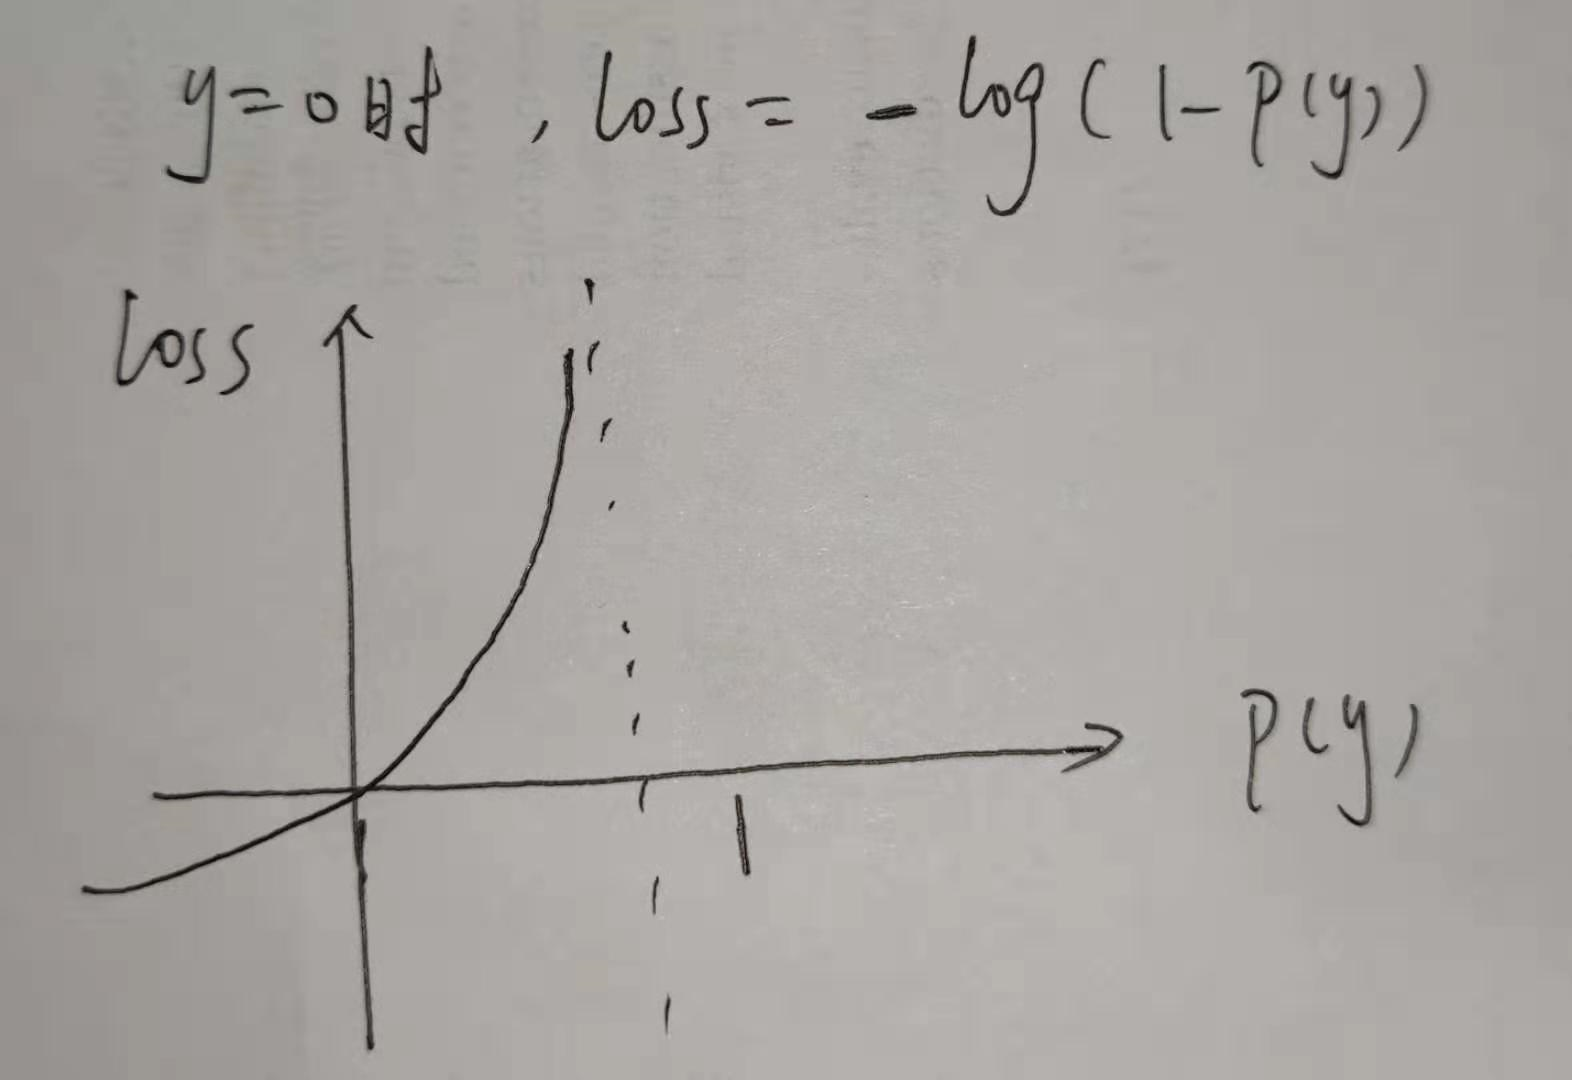 y=0时, loss = -log(1-P(y))
loss
P(y)
1